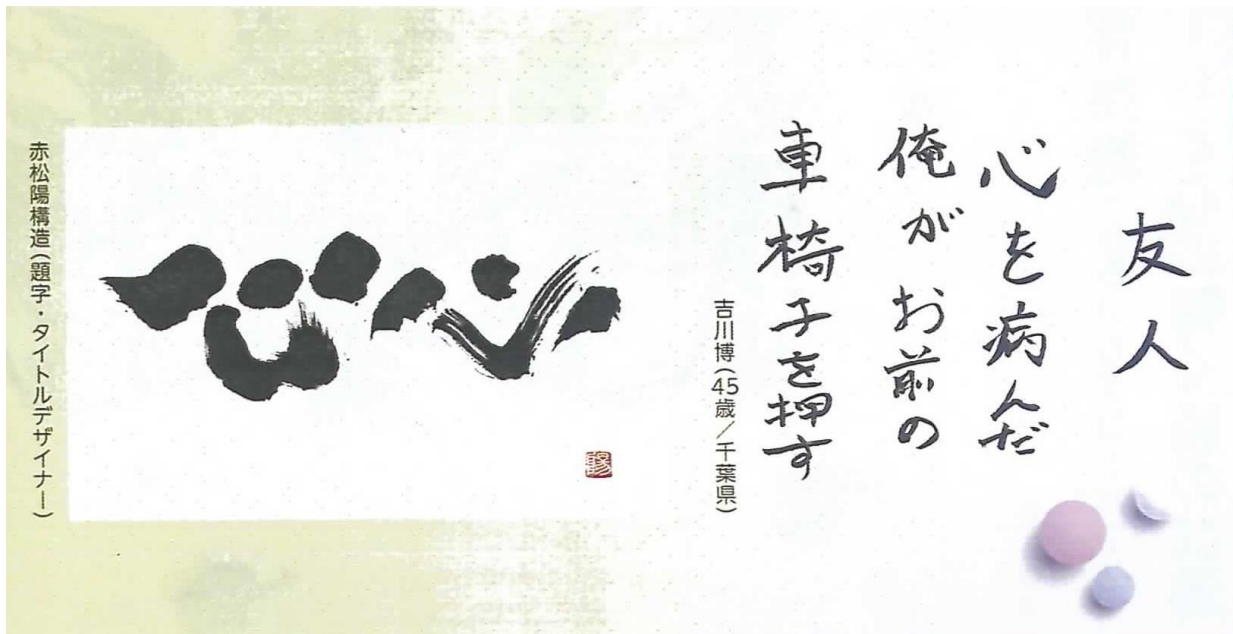 友人
心を病んだ
俺がお前の
車椅子を押す
吉川博(45歳／千葉県)
心心
赤松陽構造(題字・タイトルデザイナー)